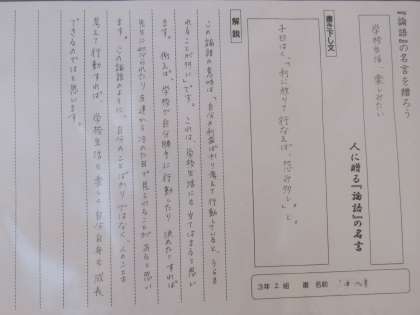 『論語』の名言を贈ろう
学校生活を楽しみたい
人に贈る『論語』の名言
書き下し文
子曰はく、「利に放りて行なえば、怨み多し。」と。
解説
この論語の意味は、「自分の利益ばかり考えて行動していると、うらま
れることが多い」です。これは、学校生活にも当てはまると思い
ます。例えば、学校で自分勝手に行動したり、決めたりすれば
先生に怒られたり、友達から冷めた目で見られることがあると思い
ます。この論語のように、自分のことばかりではなく、人のことを
考えて行動すれば、学校生活も楽しく、自分自身も成長
できるのではと思います。
3年 2組 番 名前